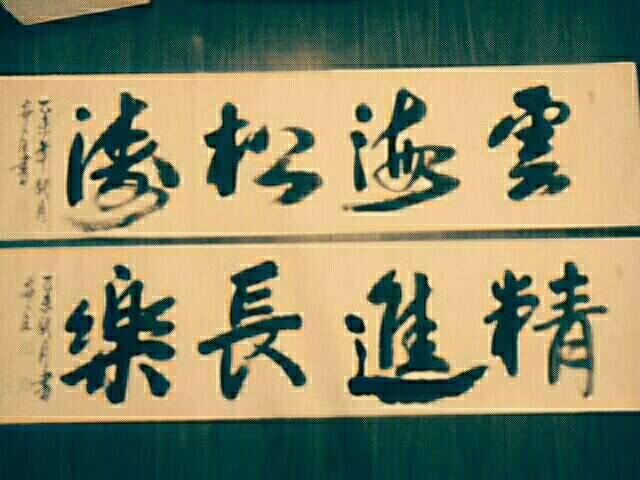 雲海松濤
精進長樂